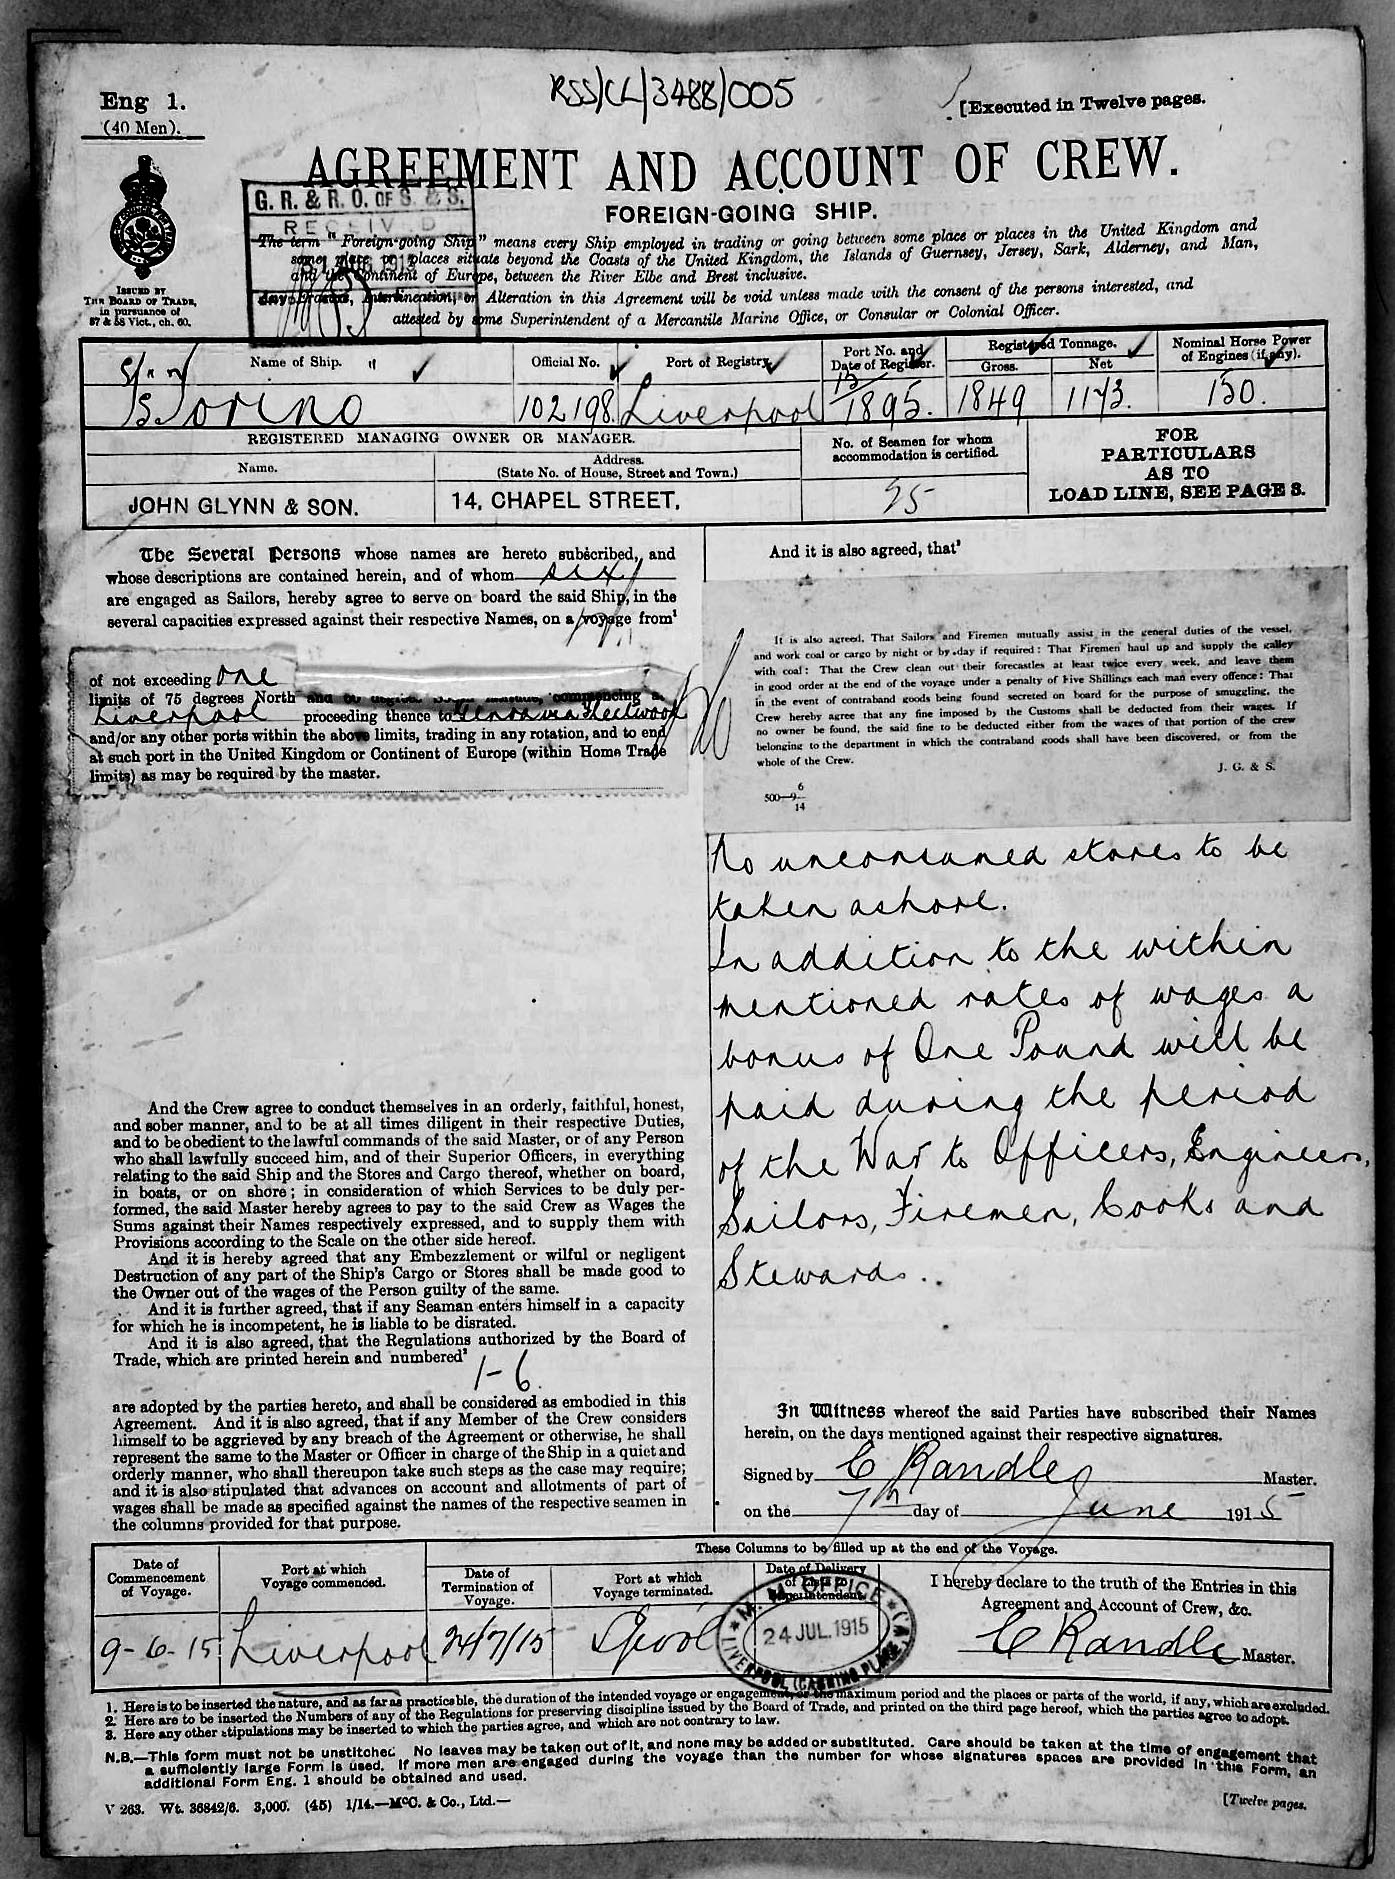 RSS/CL/3488/005
Eng 1.
(40 Men).
[Executed in Twelve pages.
AGREEMENT AND ACCOUNT OF CREW.
FOREIGN-GOING SHIP.
G. R. & R. O. OF S. & S.
RECEIVED
ISSUED BY
THE BOARD OF TRADE,
in pursuance of
57 & 58 Vict., ch. 60.
The term "Foreign-going Ship" means every Ship employed in trading or going between some place or places in the United Kingdom and
some place or places situate beyond the Coasts of the United Kingdom, the Islands of Guernsey, Jersey, Sark, Alderney, and Man,
and the Continent of Europe, between the River Elbe and Brest inclusive.
Any Erasure, Interlineation, or Alteration in this Agreement will be void unless made with the consent of the persons interested, and
attested by some Superintendent of a Mercantile Marine Office, or Consular or Colonial Officer.
Name of Ship.
Official No.
Port of Registry.
Port No. and
Date of Register.
Registered Tonnage.
Gross.
Net
Nominal Horse Power
of Engines (if any).
Torino
102198
Liverpool
13/1895.
1849
1173.
150.
REGISTERED MANAGING OWNER OR MANAGER.
Name.
Address.
(State No. of House, Street and Town.)
No. of Seamen for whom
accommodation is certified.
FOR
PARTICULARS
AS TO
LOAD LINE, SEE PAGE 3.
JOHN GLYNN & SON.
14, CHAPEL STREET,
25
The Several Persons whose names are hereto subscribed, and
whose descriptions are contained herein, and of whom six
are engaged as Sailors, hereby agree to serve on board the said Ship, in the
several capacities expressed against their respective Names, on a voyage from¹
of not exceeding One
limits of 75 degrees North
commencing
Liverpool proceeding thence to Genoa via Fleetwood
and/or any other ports within the above limits, trading in any rotation, and to end
at such port in the United Kingdom or Continent of Europe (within Home Trade
limits) as may be required by the master.
And the Crew agree to conduct themselves in an orderly, faithful, honest,
and sober manner, and to be at all times diligent in their respective Duties,
and to be obedient to the lawful commands of the said Master, or of any Person
who shall lawfully succeed him, and of their Superior Officers, in everything
relating to the said Ship and the Stores and Cargo thereof, whether on board,
in boats, or on shore; in consideration of which Services to be duly per-
formed, the said Master hereby agrees to pay to the said Crew as Wages the
Sums against their Names respectively expressed, and to supply them with
Provisions according to the Scale on the other side hereof.
And it is hereby agreed that any Embezzlement or wilful or negligent
Destruction of any part of the Ship's Cargo or Stores shall be made good to
the Owner out of the wages of the Person guilty of the same.
And it is further agreed, that if any Seaman enters himself in a capacity
for which he is incompetent, he is liable to be disrated.
And it is also agreed, that the Regulations authorized by the Board of
Trade, which are printed herein and numbered²
1-6
are adopted by the parties hereto, and shall be considered as embodied in this
Agreement. And it is also agreed, that if any Member of the Crew considers
himself to be aggrieved by any breach of the Agreement or otherwise, he shall
represent the same to the Master or Officer in charge of the Ship in a quiet and
orderly manner, who shall thereupon take such steps as the case may require;
and it is also stipulated that advances on account and allotments of part of
wages shall be made as specified against the names of the respective seamen in
the columns provided for that purpose.
And it is also agreed, that³
It is also agreed, That Sailors and Firemen mutually assist in the general duties of the vessel,
and work coal or cargo by night or by day if required: That Firemen haul up and supply the galley
with coal: That the Crew clean out their forecastles at least twice every week, and leave them
in good order at the end of the voyage under a penalty of Five Shillings each man every offence: That
in the event of contraband goods being found secreted on board for the purpose of smuggling, the
Crew hereby agree that any fine imposed by the Customs shall be deducted from their wages. If
no owner be found, the said fine to be deducted either from the wages of that portion of the crew
belonging to the department in which the contraband goods shall have been discovered, or from the
whole of the Crew.
J. G. & S.
500—9 6/14
No unconsumed stores to be
taken ashore.
In addition to the within
mentioned rates of wages a
bonus of One Pound will be
paid during the period
of the War to Officers, Engineers,
Sailors, Firemen, Cooks and
Stewards.
In Witness whereof the said Parties have subscribed their Names
herein, on the days mentioned against their respective signatures.
Signed by C Randle Master.
on the 7th day of June 1915
These Columns to be filled up at the end of the Voyage.
Date of
Commencement
of Voyage.
Port at which
Voyage commenced.
Date of
Termination of
Voyage.
Port at which
Voyage terminated.
Date of Delivery
of Lists to
Superintendent.
I hereby declare to the truth of the Entries in this
Agreement and Account of Crew, &c.
9-6-15
Liverpool
24/7/15
L'pool
M. M. OFFICE
24 JUL. 1915
LIVERPOOL (CANNING PLACE)
C Randle Master.
1. Here is to be inserted the nature, and as far as practicable, the duration of the intended voyage or engagement, or the maximum period and the places or parts of the world, if any, which are excluded.
2. Here are to be inserted the Numbers of any of the Regulations for preserving discipline issued by the Board of Trade, and printed on the third page hereof, which the parties agree to adopt.
3. Here any other stipulations may be inserted to which the parties agree, and which are not contrary to law.
N.B.—This form must not be unstitched. No leaves may be taken out of it, and none may be added or substituted. Care should be taken at the time of engagement that
a sufficiently large Form is used. If more men are engaged during the voyage than the number for whose signatures spaces are provided in this Form, an
additional Form Eng. 1 should be obtained and used.
V 263. Wt. 36842/6. 3,000. (45) 1/14.—McC. & Co., Ltd.—
[Twelve pages.